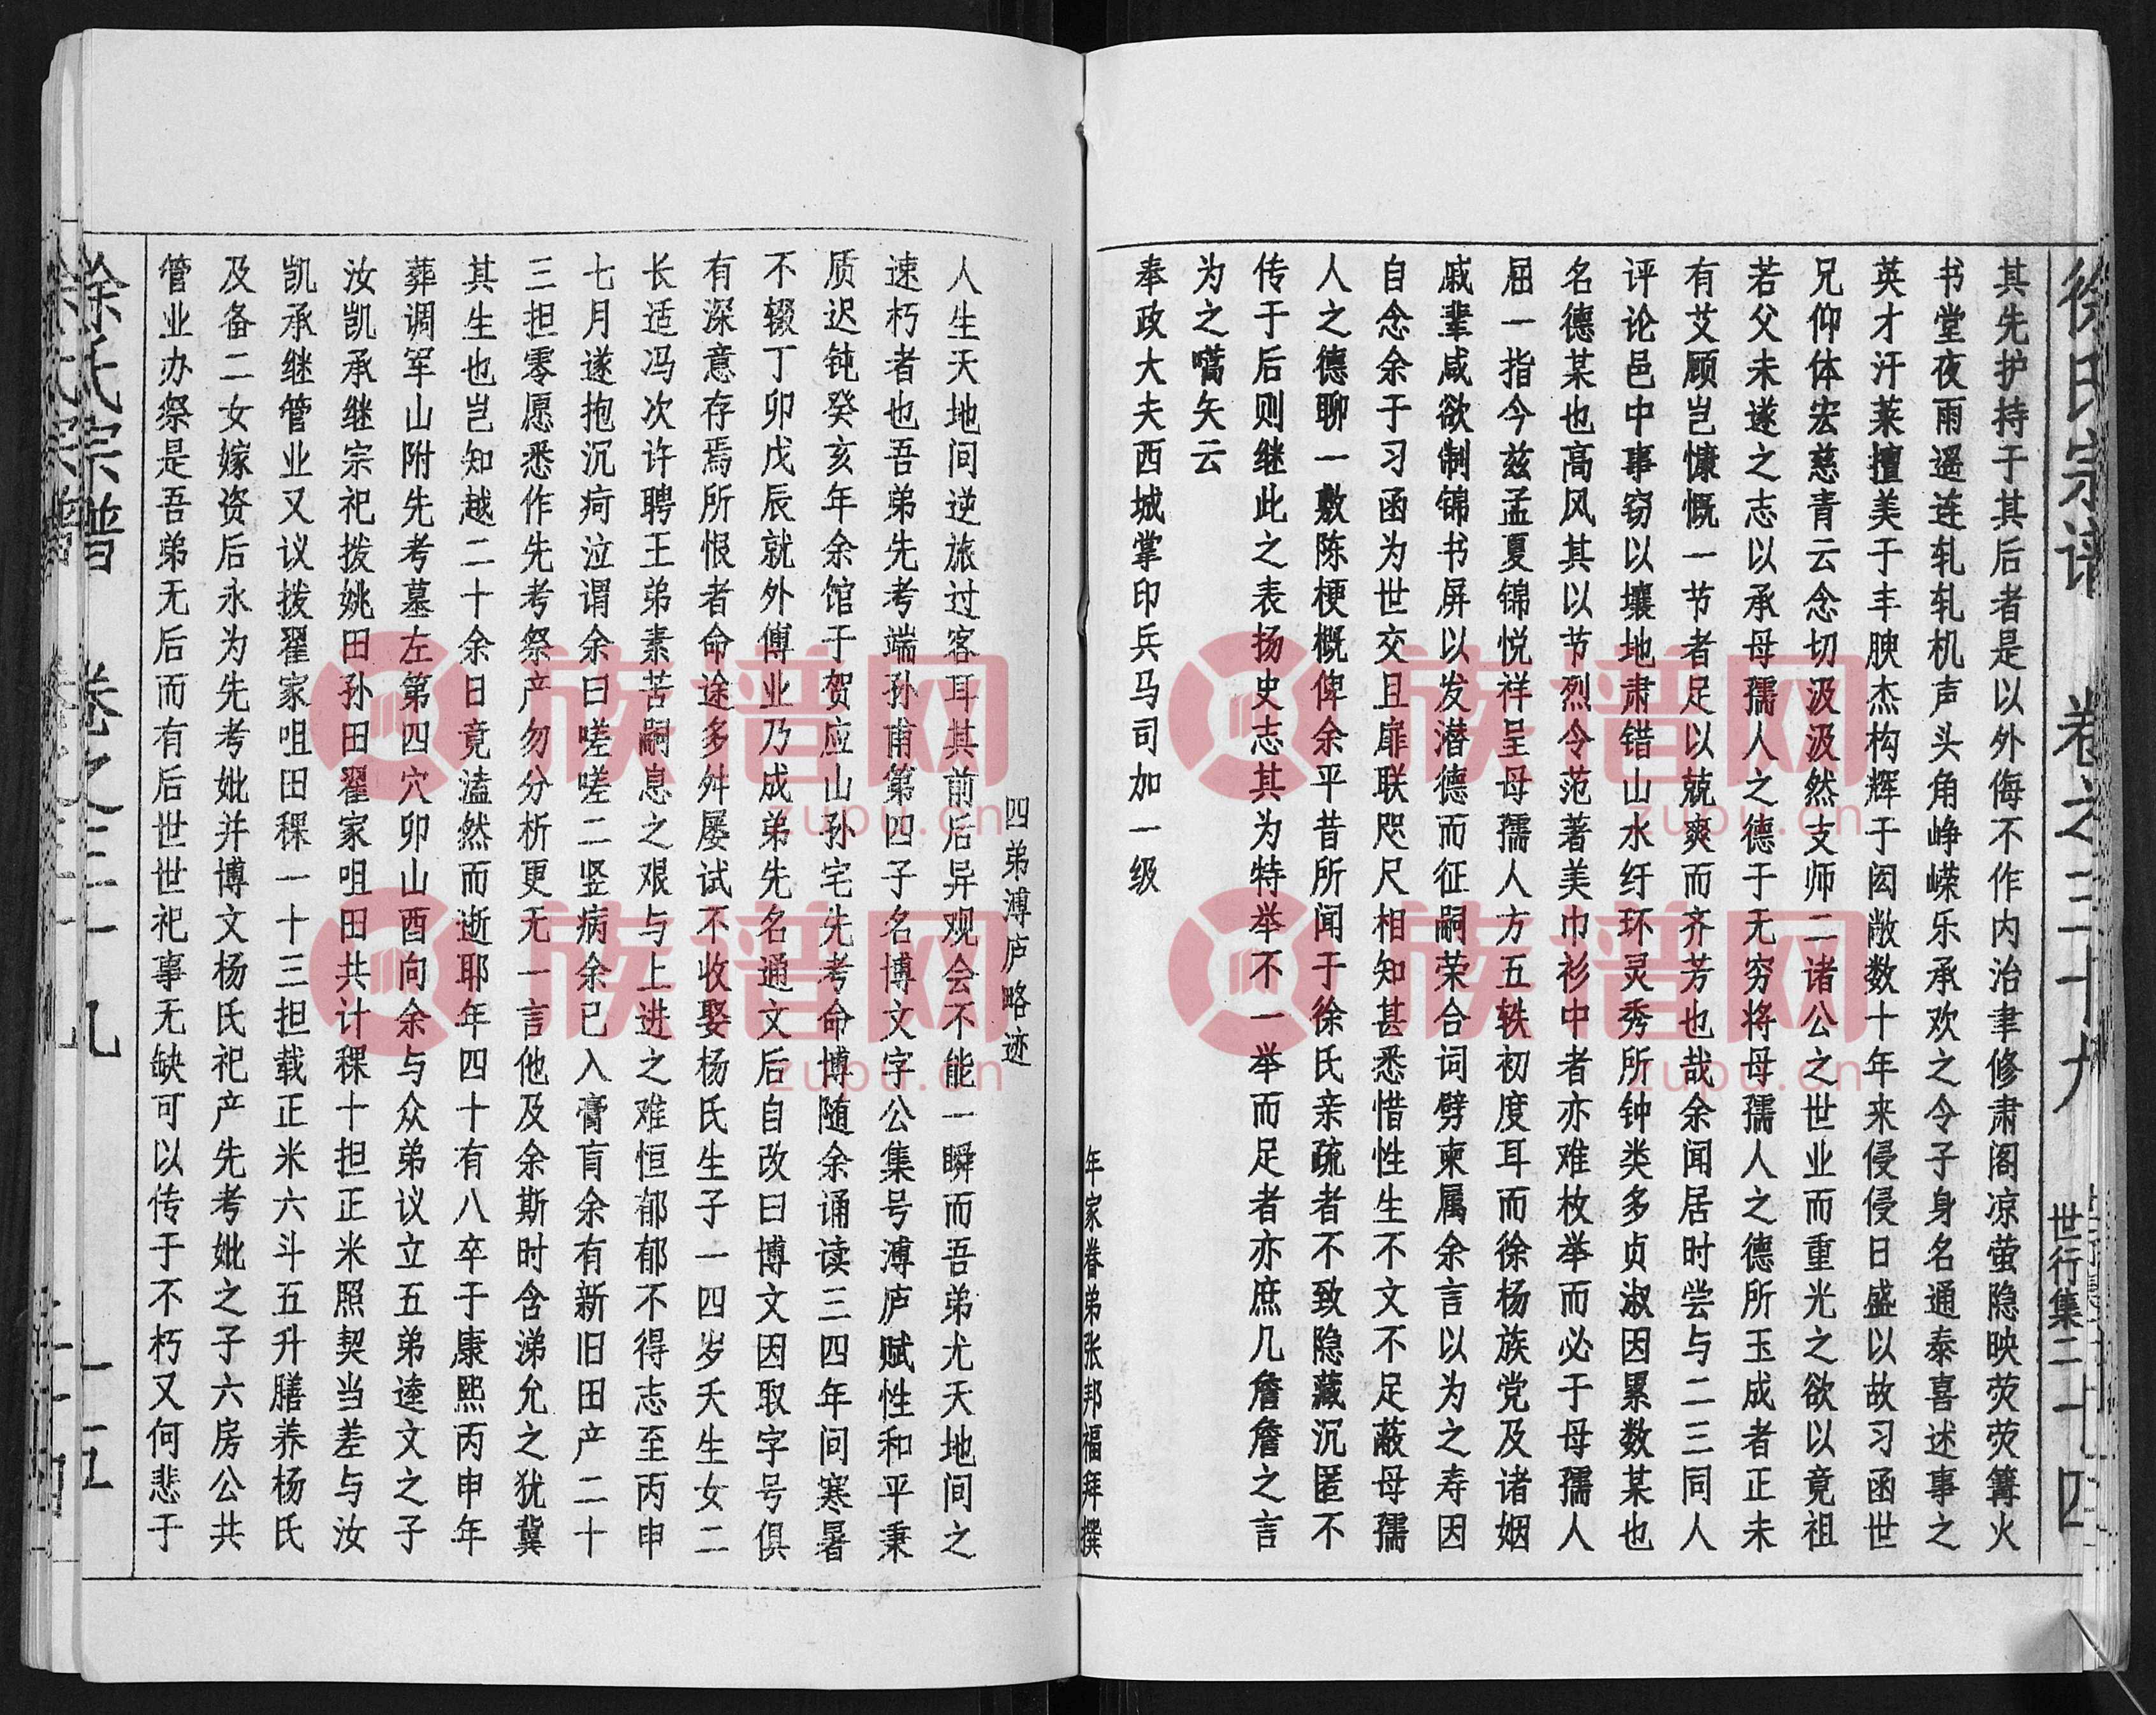 徐氏宗谱 卷之三十九 世行集二 十四
其先护持于其后者是以外侮不作内治聿修肃阁凉萤隐映荧荧篝火
书堂夜雨遥连轧轧机声头角峥嵘乐承欢之令子身名通泰喜述事之
英才汗莱擅美于丰腴杰构辉于闳敞数十年来侵侵日盛以故习函世
兄仰体宏慈青云念切汲汲然支师二诸公之世业而重光之欲以竟祖
若父未遂之志以承母孺人之德于无穷将母孺人之德所玉成者正未
有艾顾岂慷慨一节者足以兢爽而齐芳也哉余闻居时尝与二三同人
评论邑中事窃以壤地肃错山水纡环灵秀所钟类多贞淑因累数某也
名德某也高风其以节烈令范著美巾衫中者亦难枚举而必于母孺人
屈一指今兹孟夏锦悦祥呈母孺人方五轶初度耳而徐杨族党及诸姻
戚辈咸欲制锦书屏以发潜德而征嗣荣合词劈柬属余言以为之寿因
自念余于习函为世交且扉联咫尺相知甚悉惜性生不文不足蔽母孺
人之德聊一敷陈梗概俾余平昔所闻于徐氏亲疏者不致隐藏沉匿不
传于后则继此之表扬史志其为特举不一举而足者亦庶几詹詹之言
为之嚆矢云
奉政大夫西城掌印兵马司加一级
年家眷弟张邦福拜撰
四弟溥庐略迹
人生天地间逆旅过客耳其前后异观会不能一瞬而吾弟尤天地间之
速朽者也吾弟先考端孙甫第四子名博文字公集号溥庐赋性和平秉
质迟钝癸亥年余馆于贺应山孙宅先考命博随余诵读三四年问寒暑
不辍丁卯戊辰就外傅业乃成弟先名通文后自改曰博文因取字号俱
有深意存焉所恨者命途多舛屡试不收娶杨氏生子一四岁夭生女二
长适冯次许聘王弟素苦嗣息之艰与上进之难恒郁郁不得志至丙申
七月遂抱沉疴泣谓余曰嗟嗟二竖病余已入膏肓余有新旧田产二十
三担零愿悉作先考祭产勿分析更无一言他及余斯时含涕允之犹冀
其生也岂知越二十余日竟溘然而逝耶年四十有八卒于康熙丙申年
葬调军山附先考墓左第四穴卯山酉向余与众弟议立五弟逵文之子
汝凯承继宗祀拨姚田孙田翟家咀田共计稞十担正米照契当差与汝
凯承继管业又议拨翟家咀田稞一十三担载正米六斗五升膳养杨氏
及备二女嫁资后永为先考妣并博文杨氏祀产先考妣之子六房公共
管业办祭是吾弟无后而有后世世祀事无缺可以传于不朽又何悲于
徐氏宗谱 卷之三十九 十五
族谱网
zupu.cn
族谱网
zupu.cn
族谱网
zupu.cn
族谱网
zupu.cn